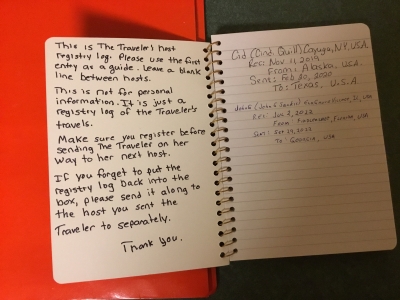 This is The Traveler's host
registry log. Please use the first
entry as a guide. Leave a blank
line between hosts.
This is not for personal
information. It is just a
registry log of the Traveler's
travels.
Make sure you register before
sending The Traveler on her
way to her next host.
If you forget to put the
registry log back into the
box, please send it along to
the host you sent the
Traveler to separately.
Thank you.
Cid (Cind. Quill) Cayuga, N.Y, U.S.A.
Rec: Nov 11, 2019
From: Alaska, USA.
Sent: Feb 20, 2020
To: Texas, U.S.A
USA
Rec: Jun 2, 2022
From USA
Sent: 2022
To Georgia, USA